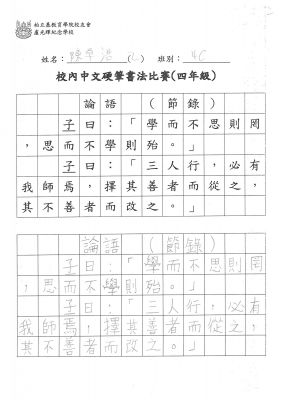 柏立基教育學院校友會
盧光輝紀念學校
姓名：陳早浩( ) 班別：4C
校內中文硬筆書法比賽(四年級)
論語（節錄）
子曰：「學而不思則罔
，思而不學則殆。」
子曰：「三人行，必有
我師焉，擇其善者而從之，
其不善者而改之。」
論語（節錄）
子曰：「學而不思則罔
，思而不學則殆。」
子曰：「三人行，必有
我師焉，擇其善者而從之，
其不善者而改之。」